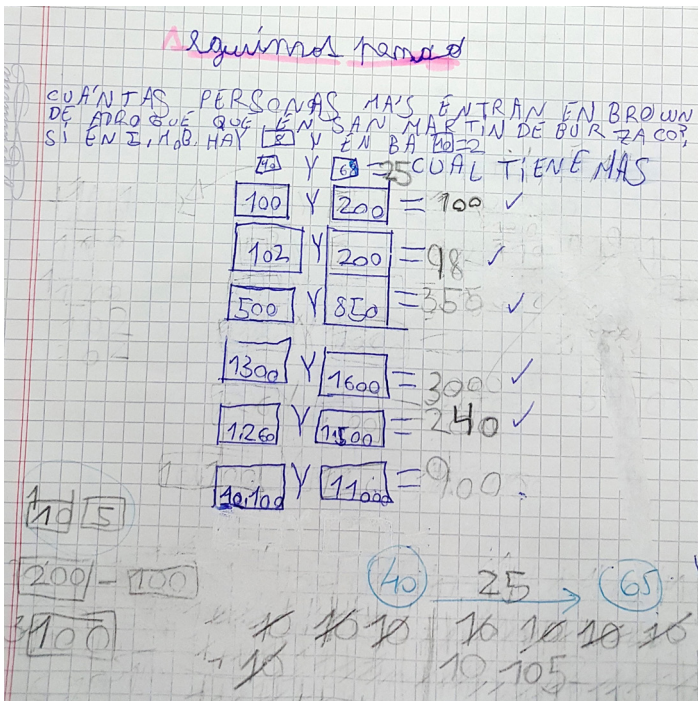 Seguimos pensando
CUÁNTAS PERSONAS MÁS ENTRAN EN BROWN
DE ADROGUÉ QUE EN SAN MARTIN DE BURZACO?,
SI EN I.M.B. HAY 8 Y EN BA 10=2
40 Y 65 = 25 CUAL TIENE MAS
100 Y 200 = 100 ✓
102 Y 200 = 98 ✓
500 Y 850 = 350 ✓
1300 Y 1600 = 300 ✓
1.260 Y 1.500 = 240 ✓
10.100 Y 11000 = 900.
10 5
200 - 100
100
40 25 65
10 10 10 10 10 10 10
10 10.105